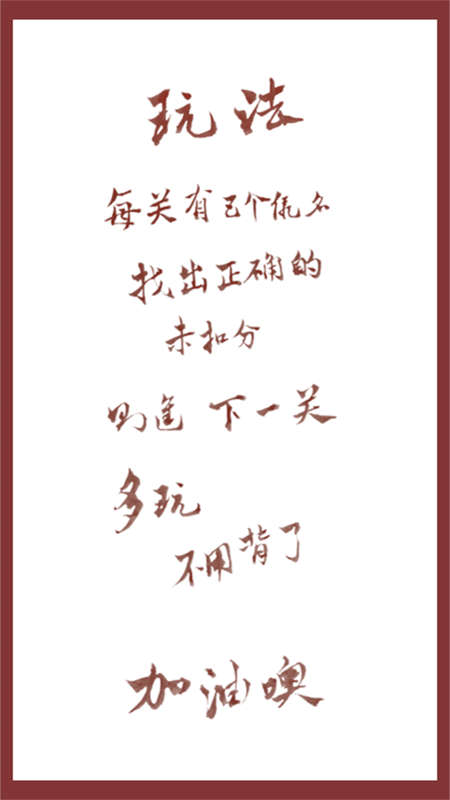 玩法
每关有已个俬名
找出正确的
未扣分
则進 下一关
多玩
不用背了
加油噢